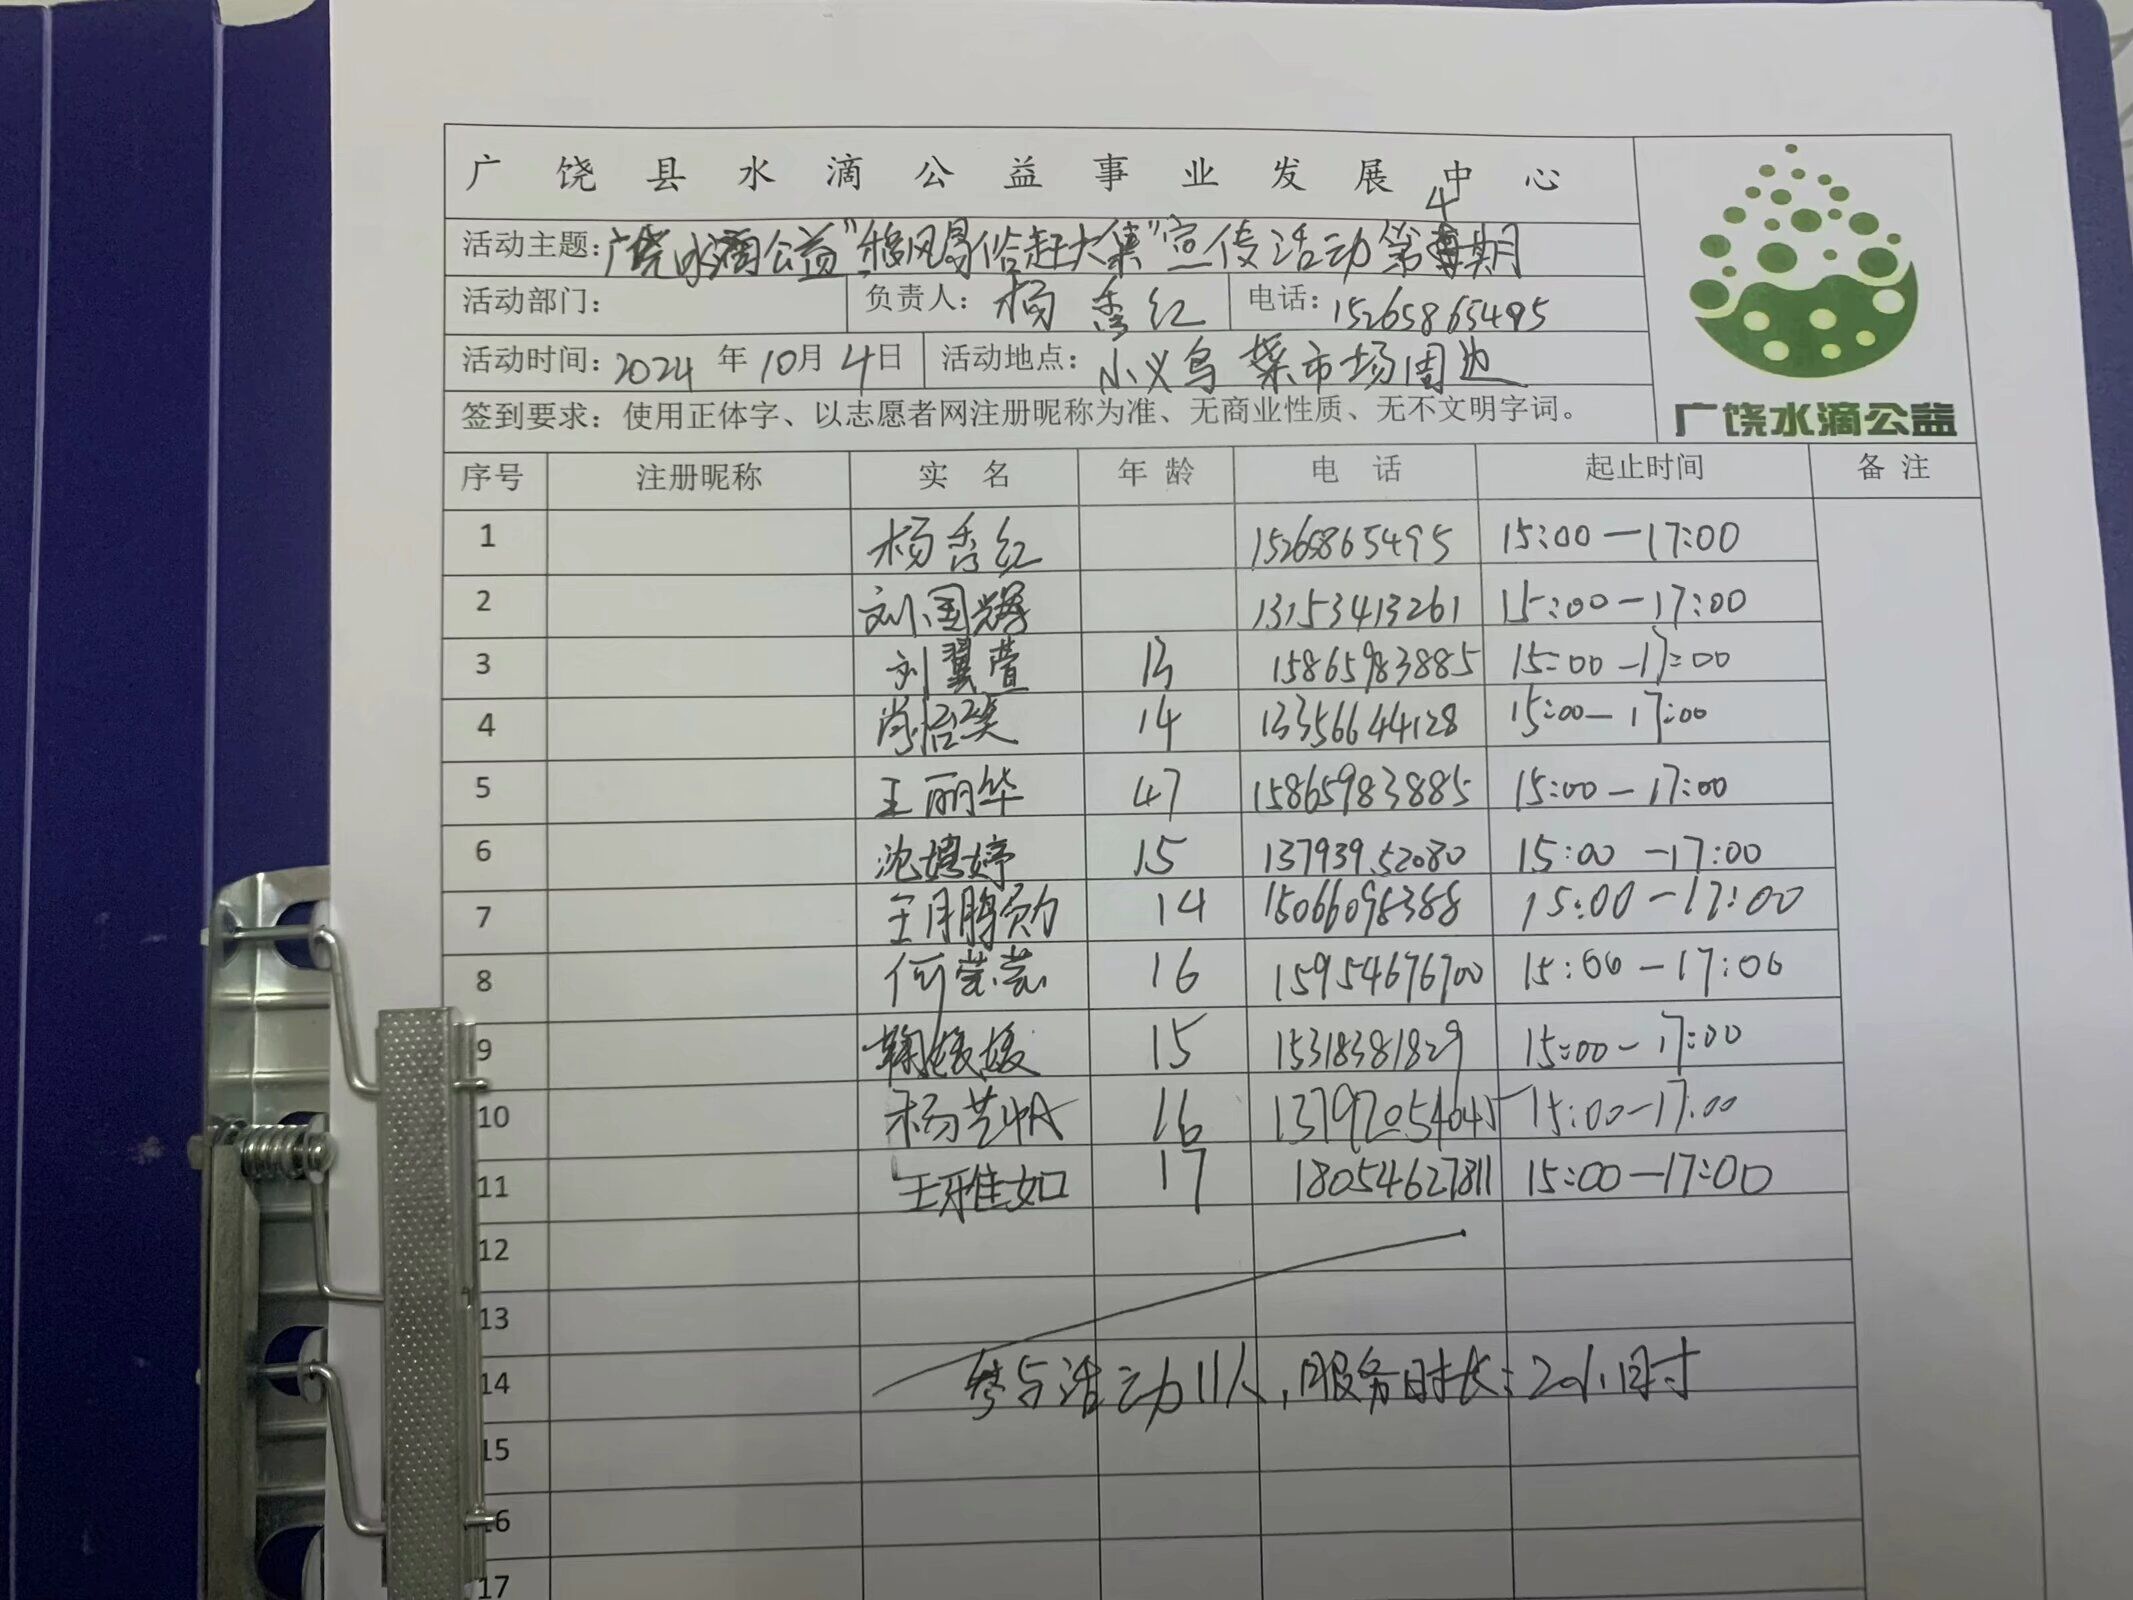 广饶县水滴公益事业发展中心
活动主题：广饶水滴公益"移风易俗赶大集"宣传活动第4期
活动部门： 负责人：杨秀红 电话：15265865495
活动时间：2024年10月4日 活动地点：小义乌菜市场周边
签到要求：使用正体字、以志愿者网注册昵称为准、无商业性质、无不文明字词。
广饶水滴公益
序号 注册昵称 实名 年龄 电话 起止时间 备注
1 杨秀红 15265865495 15:00—17:00
2 刘国辉 13153413261 15:00—17:00
3 刘翼萱 13 15865983885 15:00—17:00
4 肖怡笑 14 13356644128 15:00—17:00
5 王丽华 47 15865983885 15:00—17:00
6 沈婷 15 13793952080 15:00—17:00
7 王月鹏 14 15066098388 15:00—17:00
8 何芸芸 16 15954676700 15:00—17:00
9 鞠媛媛 15 15318381829 15:00—17:00
10 杨艺帆 16 13792054045 15:00—17:00
11 王雅如 17 18054627811 15:00—17:00
12
13
14 参与活动11人，服务时长：2小时
15
16
17